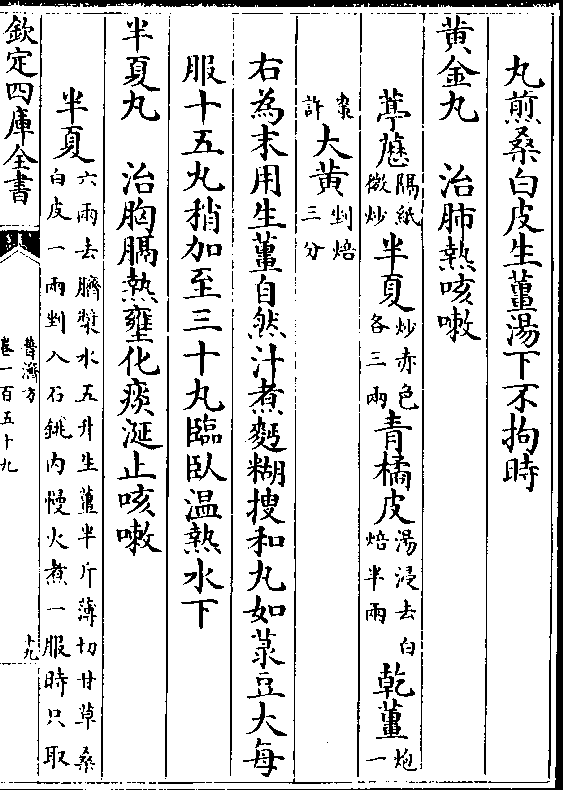 丸煎桑白皮生薑湯下不拘時
黄金丸 治肺熱咳嗽
葶藶隔紙微炒半夏炒赤色各三兩青橘皮湯浸去白焙半兩乾薑炮一
棗許大黄剉焙三分
右為末用生薑自然汁煮麪糊搜和丸如菉豆大每
服十五丸稍加至三十丸臨臥温熱水下
半夏丸 治胸膈熱壅化痰涎止咳嗽
半夏六兩去臍漿水五升生薑半斤薄切甘草桑白皮一兩剉入石銚内慢火煮一服時只取
欽定四庫全書
普濟方
卷一百五十九
十九